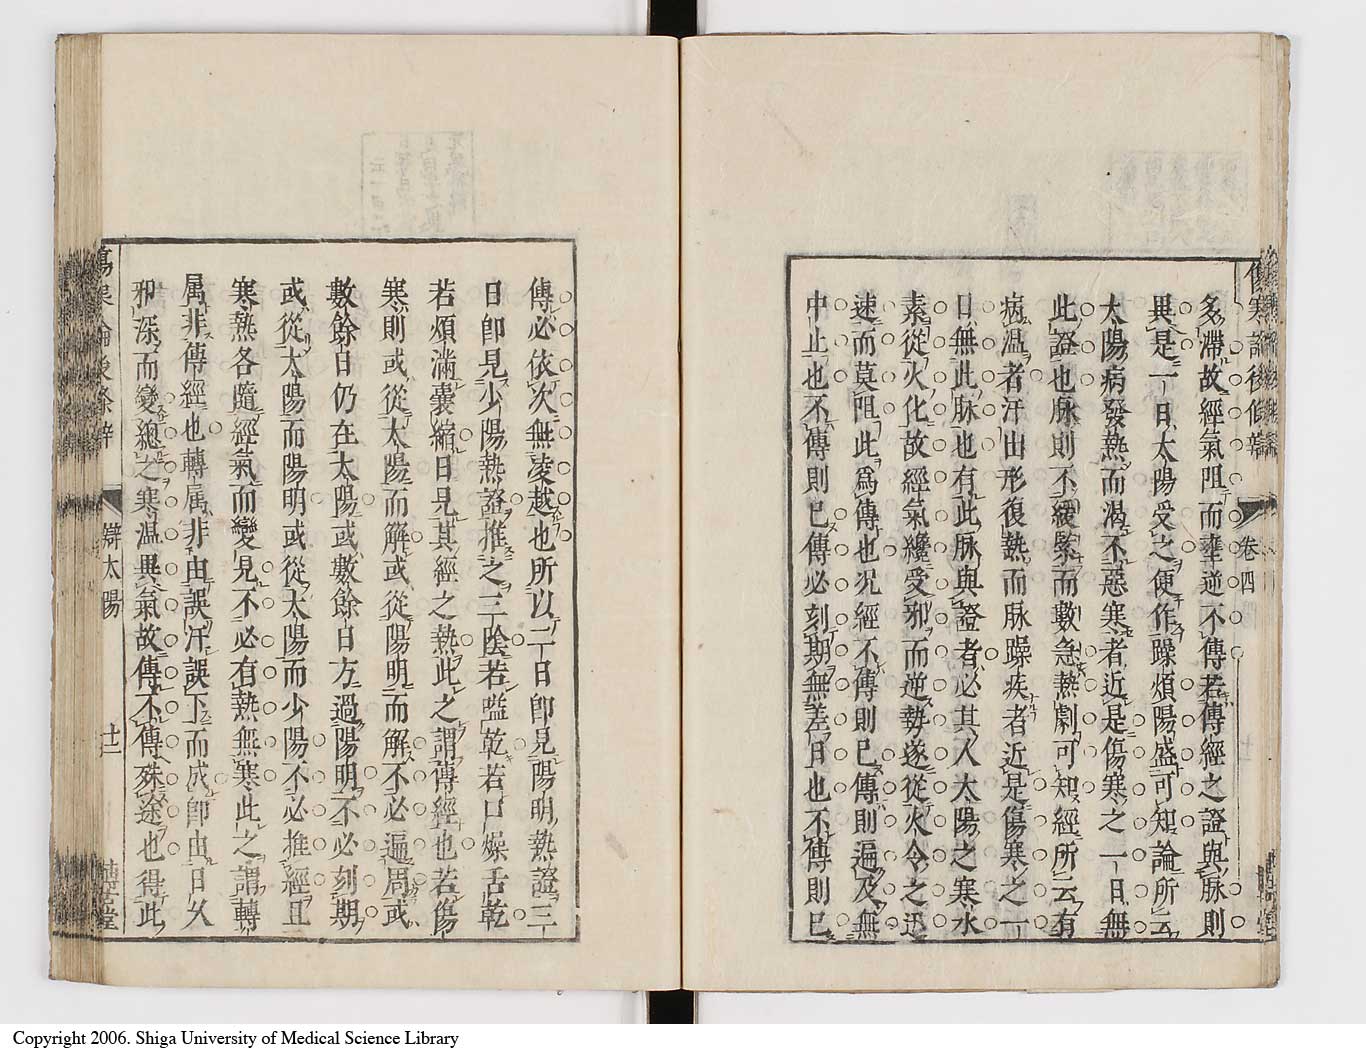 卷四
多滯故經氣阻而壅逆不傳若傳經之證與脉則
異是一日太陽受之使作躁煩陽盛可知論所云
太陽病發熱而渴不惡寒者近是傷寒之一日無
此證也脉則不緩緊而數急熱劇可知經所云有
病温者汗出形復熱而脉躁疾者近是傷寒之一
日無此脉也有此脉與證者必其人太陽之寒水
素從火化故經氣纔受邪而逆勢遂從火令之迅
速而莫阻此爲傳也况經不傳則已傳則遍及無
中止也不傳則已傳必刻期無差日也不傳則已
傳必依次無凌越也所以二日卽見陽明熱證三
日卽見少陽熱證推之三陰若嗌乾若口燥舌乾
若煩滿囊縮日見其經之熱此之謂傳經也若傷
寒則或從太陽而解或從陽明而解不必遍周或
數餘日仍在太陽或數餘日方過陽明不必刻期
或從太陽而陽明或從太陽而少陽不必推經且
寒熱各隨經氣而變見不必有熱無寒此之謂轉
属非傳經也轉属非由誤汗誤下而成卽由日久
邪深而變總之寒温異氣故傳不傳殊途也得此
辯太陽
十二